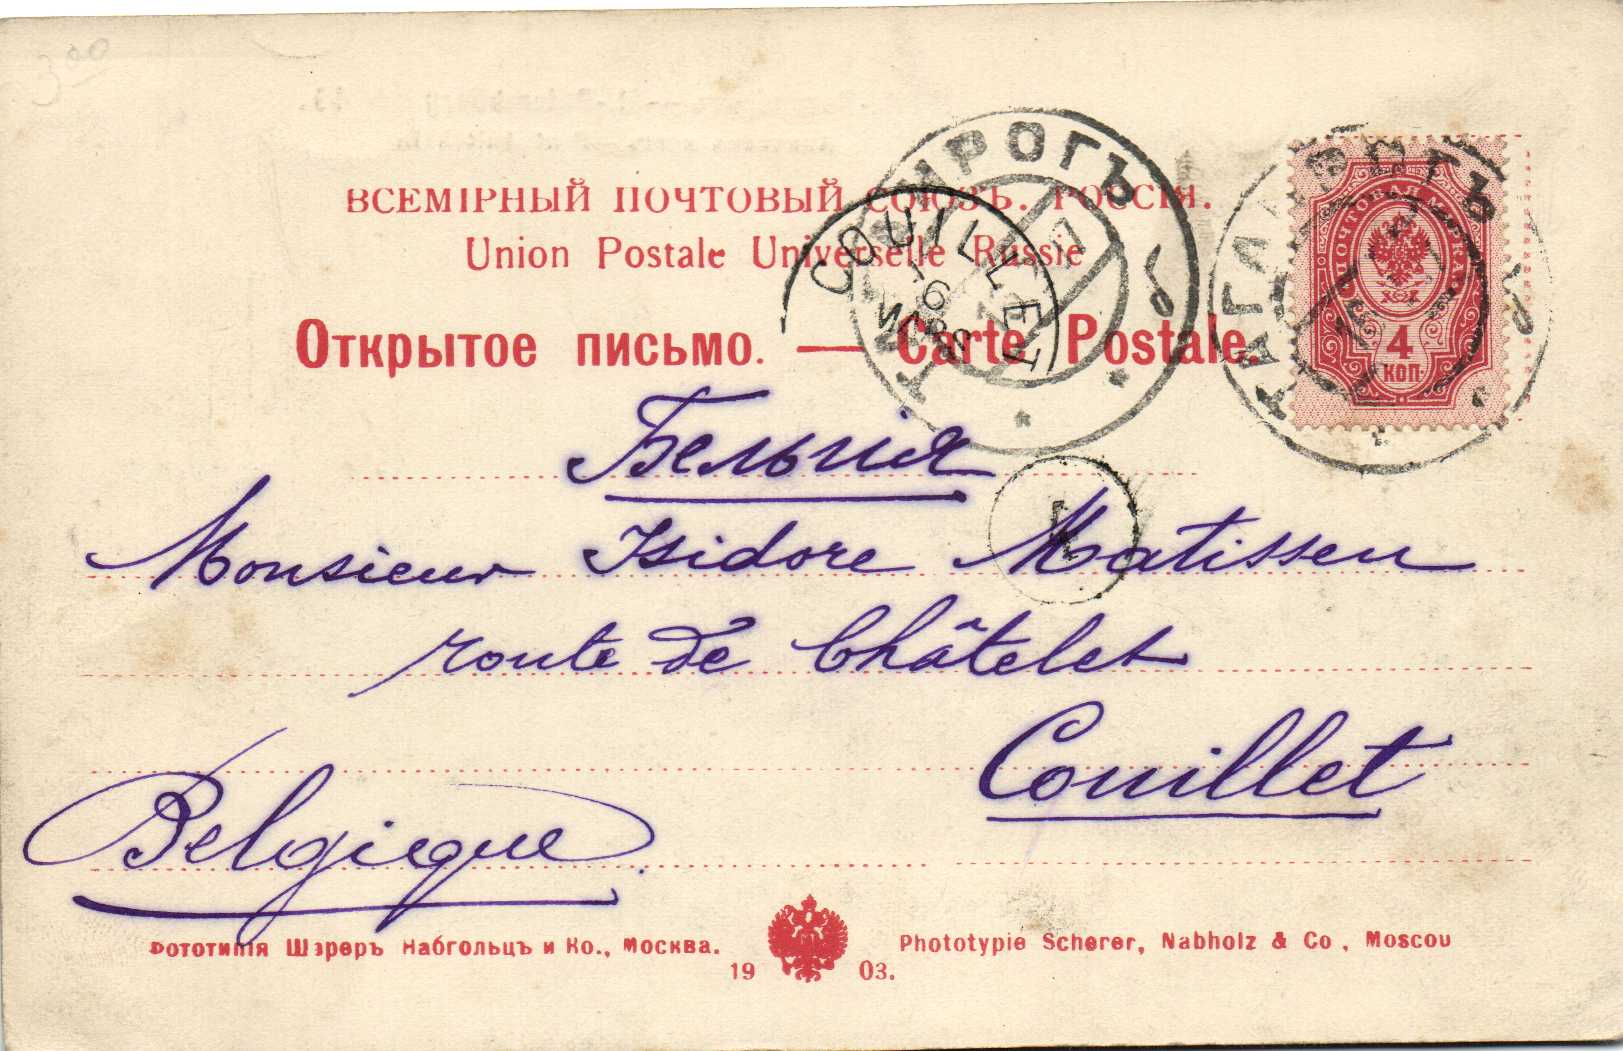 3.00
ВСЕМІРНЫЙ ПОЧТОВЫЙ СОЮЗЪ. РОССІЯ.
Union Postale Universelle Russie
Открытое письмо. — Carte Postale.
ТАГАНРОГЪ
COUILLET
6
MARS
ТАГАНРОГЪ
ПОЧТОВАЯ МАРКА
4
КОП.
Бельгия
Monsieur Isidore Matissen
route de Châtelet
Couillet
Belgique.
Фототипія Шэреръ Набгольцъ и Ко., Москва.
Phototypie Scherer, Nabholz & Co, Moscou
19 03.